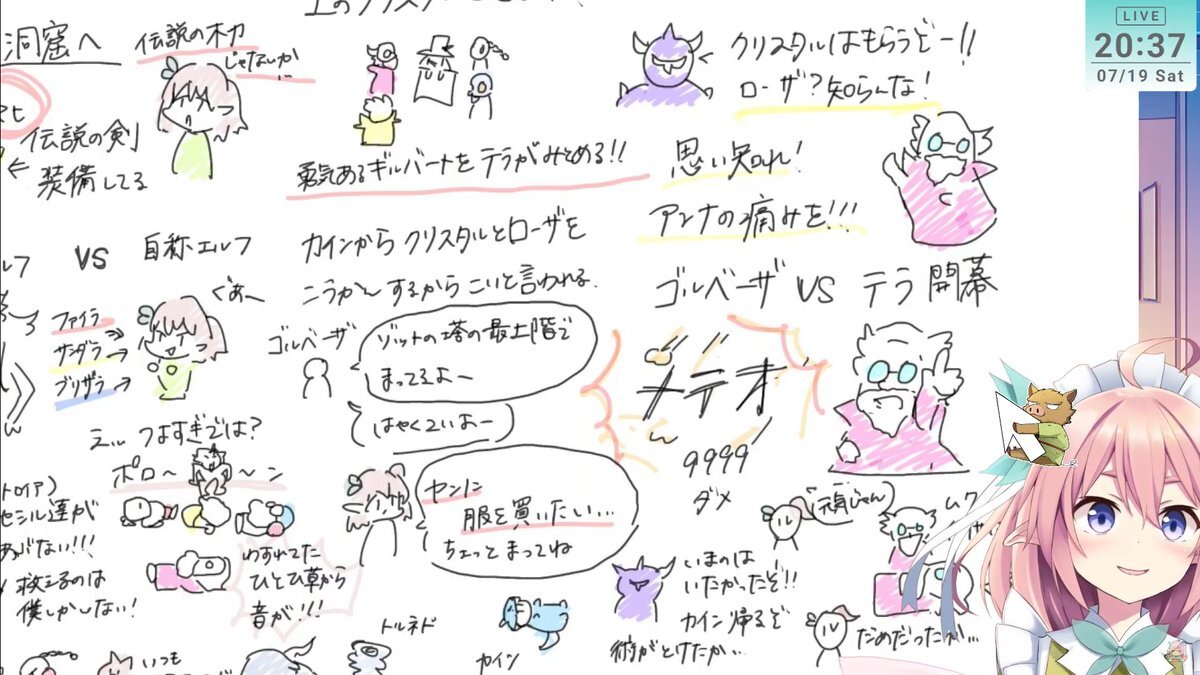 LIVE
20:37
07/19 Sat
洞窟へ
伝説の木刀
じゃないか…
伝説の剣
← 装備してる
勇気あるギルバートをテラがみとめる!!
クリスタルはもらうぞー!!
ローザ?知らんな!
思い知れ!
アンナの痛みを!!!
vs 自称エルフ
ぐあー
ファイラ
サンダラ→
ブリザラ→
えぃ つよすぎでは?
カインからクリスタルとローザを
こうかんするからこいと言われる.
ゴルベーザ
ゾットの塔の最上階で
まってるよー
はやくこいよー
ゴルベーザ vs テラ開幕
メテオ
9999
ダメ
ポロ〜 〜ン
トロイア)
セシル達が
あぶない!!!
救えるのは
僕しかいない!
わすれてた
ひとひ草から
音が!!!
センに
服を買いたい…
ちょっとまってね
元気じゃん
ムク
いまのは
いたかったぞ!!
カイン帰るぞ
術がとけたか…
だめだったか…
いつも
トルネド
カイン